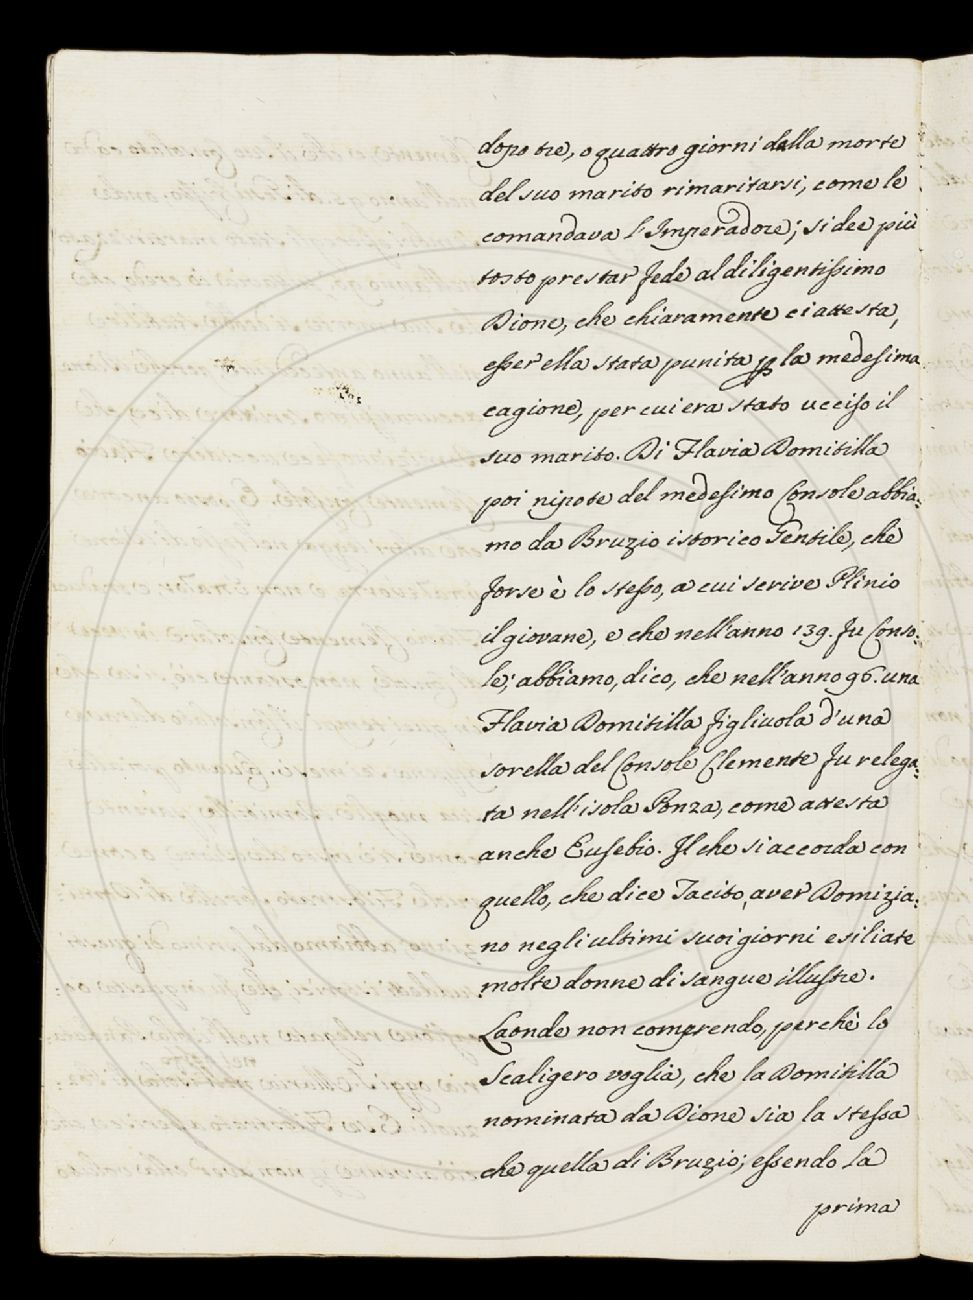 dopo tre, o quattro giorni dalla morte
del suo marito rimaritarsi, come le
comandava l'Imperadore; si dee più
tosto prestar fede al diligentissimo
Dione, che chiaramente ci attesta,
esser ella stata punita p la medesima
cagione, per cui era stato ucciso il
suo marito. Di Flavia Domitilla
poi nipote del medesimo Console abbia:
mo da Bruzio istorico Gentile, che
forse è lo stesso, a cui scrive Plinio
il giovane, e che nell'anno 139. fu Conso:
le; abbiamo, dico, che nell'anno 96. una
Flavia Domitilla figliuola d'una
sorella del Console Clemente fu relega:
ta nell'isola Ponza, come attesta
anche Eusebio. Il che si accorda con
quello, che dice Tacito, aver Domizia:
no negli ultimi suoi giorni esiliate
molte donne di sangue illustre.
Laonde non comprendo, perchè lo
Scaligero voglia, che la Domitilla
nominata da Dione sia la stessa
che quella di Bruzio; essendo la
prima